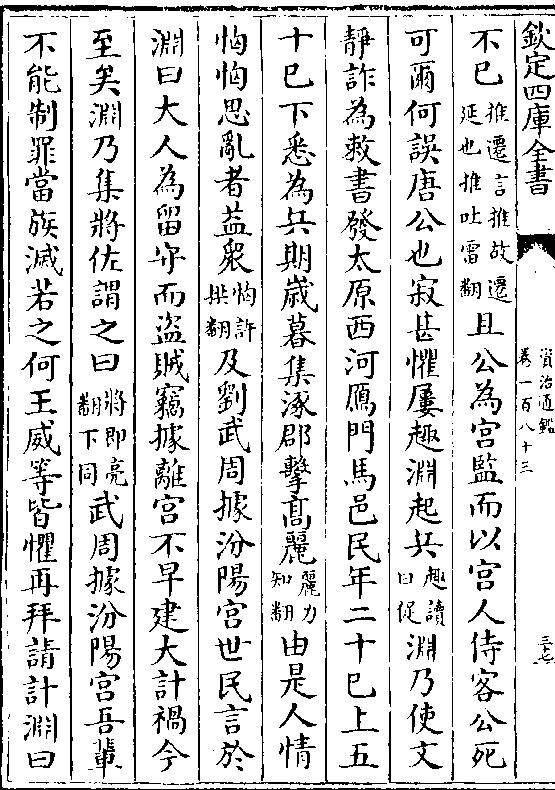 欽定四庫全書
資治通鑑
卷一百八十三
三十七
不已推遷言推故遷延也推吐雷翻且公為宫監而以宫人侍客公死
可爾何誤唐公也寂甚懼屢趣淵起兵趣讀曰促淵乃使文
靜詐為敕書發太原西河鴈門馬邑民年二十已上五
十已下悉為兵期歳暮集涿郡擊髙麗麗力知翻由是人情
恟恟思亂者益衆恟許拱翻及劉武周據汾陽宫世民言於
淵曰大人為留守而盗賊竊據離宫不早建大計禍今
至矣淵乃集將佐謂之曰將即亮翻下同武周據汾陽宫吾輩
不能制罪當族滅若之何王威等皆懼再拜請計淵曰